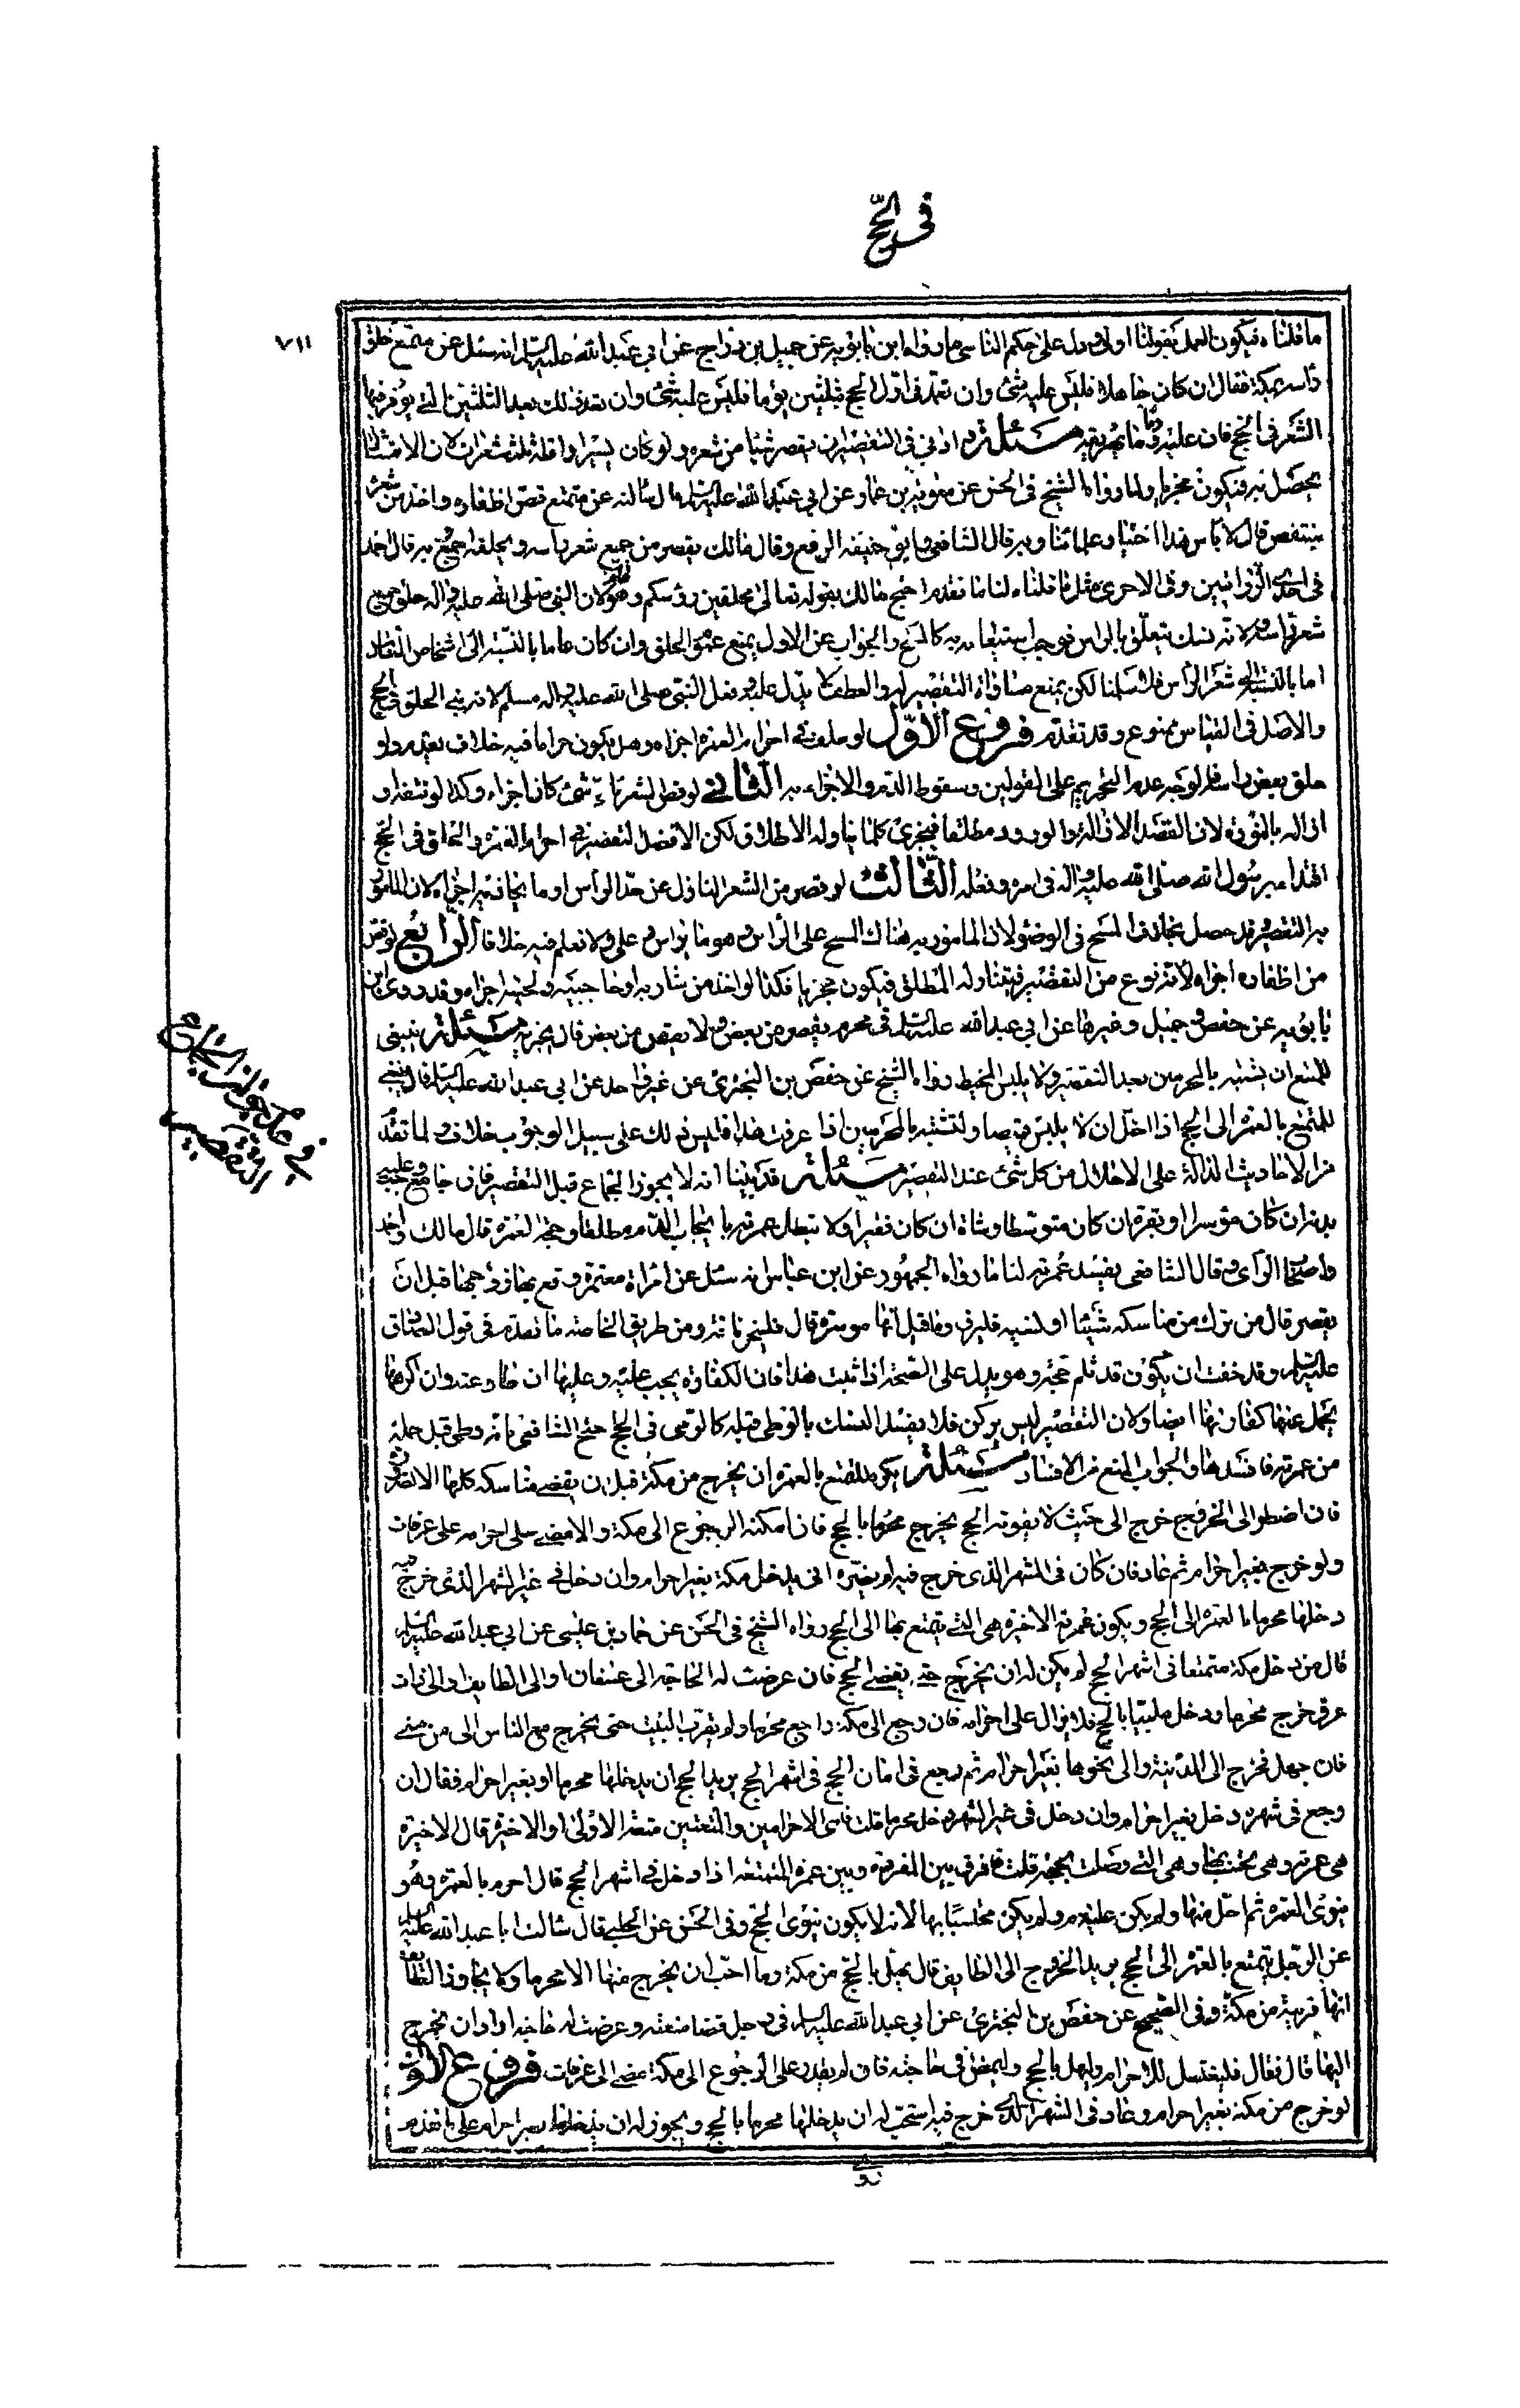 في الحجّ
٧١١
ما قلناه فيكون العمل بقولنا اولى ويدل على حكم الناسى ما رواه ابن بابويه عن جميل بن دراج عن ابي عبد الله عليه السلم انه سئل عن متمتع حلق
راسه بمكة فقال ان كان جاهلا فليس عليه شئ وان تعمد في اول الحج بثلثين يوما فليس عليه شئ وان تعمد ذلك بعد الثلثين التي يوفر فيها
الشعر في الحج فان عليه دما يهريقه مسئلة وادنى في التقصير ان يقصر شيئا من شعره ولو كان يسيرا واقله ثلث شعرات لان الامتثال
يحصل به فيكون مجزيا ولما رواه الشيخ في الحسن عن معوية بن عمار عن ابي عبد الله عليه السلم قال سالته عن متمتع قص اظفاره واخذ من شعره
بمشقص قال لا باس هذا اختيار علمائنا وبه قال الشافعى وابو حنيفه الربع وقال مالك يقصر من جميع شعر راسه ويحلقه اجمع وبه قال احمد
في احدى الروايتين وفي الاخرى مثل ما قلناه لنا ما تقدم احتج مالك بقوله تعالى محلقين رؤسكم وهو عام ولان النبي صلى الله عليه واله حلق جميع
شعر راسه ولانه نسك يتعلق بالراس فوجب استيعابه به كالمسح والجواب عن الاول بمنع عموم الحلق وان كان عاما بالنسبة الى اشخاص التقاد
اما بالنسبة الى شعر الرأس فلا سلمنا لكن يمنع مساواة التقصير له والعطف لا يدل عليه وفعل النبي صلى الله عليه واله وسلم لا نه في الحلق في الحج
والاصل في القياس ممنوع وقد تقدم فروع الاوّل لو حلق في احرام العمرة اجزاه وهل يكون حراما فيه خلاف تقدم ولو
حلق بعض راسه فالوجه عدم التحريم على القولين وسقوط الدم والاجزاء به الثاني لو قص الشعر باى شئ كان اجزاه وكذا لو نتفه او
ازاله بالنورة لان القصد الازالة والورود مطلقا فيجزى كلما يتناوله الاطلاق لكن الافضل التقصير في احرام العمرة والحلق في الحج
اقتداء برسول الله صلى الله عليه واله في امره وفعله الثالث لو قصر من الشعر النازل عن حد الرأس او ما يحاذيه اجزاه لان المامور
به التقصير وقد حصل بخلاف المسح في الوضوء لان المامور به هناك المسح على الراس وهو ما تراس وعلى ولا نعلم فيه خلافا الرابع لو قص
من اظفاره اجزاه لانه نوع من التقصير فيتناوله المطلق فيكون مجزيا فكذا لو اخذ من شاربه او حاجبيه ولحيته اجزاه وقد روى ابن
بابويه عن حفص وجميل وغيرهما عن ابي عبد الله عليه السلم في محرم يقصر من بعض ولا يقصر من بعض قال يجزيه مسئلة ينبغى
للمتمتع ان يتشبه بالمحرمين بعد التقصير ولا يلبس المخيط رواه الشيخ عن حفص بن البخترى عن غير واحد عن ابي عبد الله عليه السلم قال ينبغي
للمتمتع بالعمرة الى الحج اذا احل ان لا يلبس قميصا وليتشبه بالمحرمين اذا عرفت هذا فليس ذلك على سبيل الوجوب بلا خلاف ولما تقدم
من الاحاديث الدالة على الاحلال من كل شئ عند التقصير مسئلة قد بينا انه لا يجوز الجماع قبل التقصير فان جامع وجب عليه
بدنة ان كان موسرا او بقرة ان كان متوسطا وشاة ان كان فقيرا ولا تبطل عمرته بايجاب الدم مطلقا وصحة العمرة قال مالك واحمد
واصحاب الراى وقال الشافعى يفسد عمرته لنا ما رواه الجمهور عن ابن عباس انه سئل عن امراة معتمرة وقع بها زوجها قبل ان
يقصر قال من ترك من مناسكه شيئا او نسيه فليرق دما قيل انها موسرة قال فلينحر ناقة ومن طريق الخاصة ما تقدم في قول الصادق
عليه السلم وقد خفت ان يكون قد ثلم حجه وهو يدل على الصحة اذا ثبت هذا فان الكفارة يجب عليه وعليها ان طاوعته وان اكرهها
يحمل عنها كفارتها ايضا ولان التقصير ليس بركن فلا يفسد النسك بالوطى قبله كالرمى في الحج احتج الشافعى بانه وطى قبل حله
من عمرته فافسدها والجواب المنع من الافساد مسئلة يكره للمتمتع بالعمرة ان يخرج من مكة قبل ان يقضى مناسكه كلها الا لضرورة
فان اضطر الى الخروج خرج الى حيث لا يفوته الحج يخرج محرما بالحج فان امكنه الرجوع الى مكة والا مضى على احرامه على عرفات
ولو خرج بغير احرام ثم عاد فان كان في الشهر الذى خرج فيه لم يضره ان يدخل مكة بغير احرام وان دخل في غير الشهر الذى خرج فيه
دخلها محرما بالعمرة الى الحج ويكون عمرته الاخيرة هى التي يتمتع بها الى الحج رواه الشيخ في الحسن عن حماد بن عيسى عن ابي عبد الله عليه السلم
قال من دخل مكة متمتعا في اشهر الحج لم يكن له ان يخرج حتى يقضى الحج فان عرضت له الحاجة الى عسفان او الى الطايف والى ذات
عرق خرج محرما ودخل ملبيا بالحج فلا يزال على احرامه فان رجع الى مكة راجع محرما ولم يقرب البيت حتى يخرج مع الناس الى من منى
فان جهل فخرج الى المدينة والى نحوها بغير احرام ثم رجع في ابان الحج في اشهر الحج يريد الحج ان يدخلها محرما او بغير احرام فقال ان
رجع في شهره دخل بغير احرام وان دخل في غير الشهر دخل محرما قلت فاى الاحرامين والمتعتين متعة الاولى او الاخيرة قال الاخيرة
هى عمرته وهى يحتبس بها وهى التي وصلت بحجته قلت فما فرق بين المفردة وبين عمرة المتمتعه اذا دخل في اشهر الحج قال احرم بالعمرة وهو
ينوى العمرة ثم احل منها ولم يكن عليه دم ولم يكن محتسبا بها لانه لا يكون ينوى الحج وفي الحسن عن الحلبي قال سالت ابا عبد الله عليه السلم
عن الرجل يتمتع بالعمرة الى الحج يريد الخروج الى الطايف قال يهل بالحج من مكة وما احب ان يخرج منها الا محرما ولا يجاوز الطايف
انها قريبة من مكة وفي الصحيح عن حفص بن البخترى عن ابي عبد الله عليه السلم في رجل قضا متعته وعرضت له حاجة اراد ان يخرج
اليها قال فقال فليغتسل للاحرام وليهل بالحج وليمض في حاجته فان لم يقدر على الرجوع الى مكة مضى الى عرفات فروع الاوّل
لو خرج من مكة بغير احرام وعاد في الشهر الذى خرج فيه استحب له ان يدخلها محرما بالحج ويجوز له ان يدخلها بغير احرام على ما تقدم
في عدم جواز الجماع
قبل التقصير